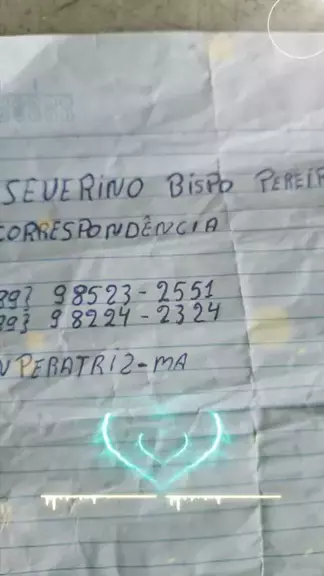 SEVERINO BISPO PEREIR
CORRESPONDÊNCIA
99} 98523-2551
99} 98224-2324
PERATRIZ-MA